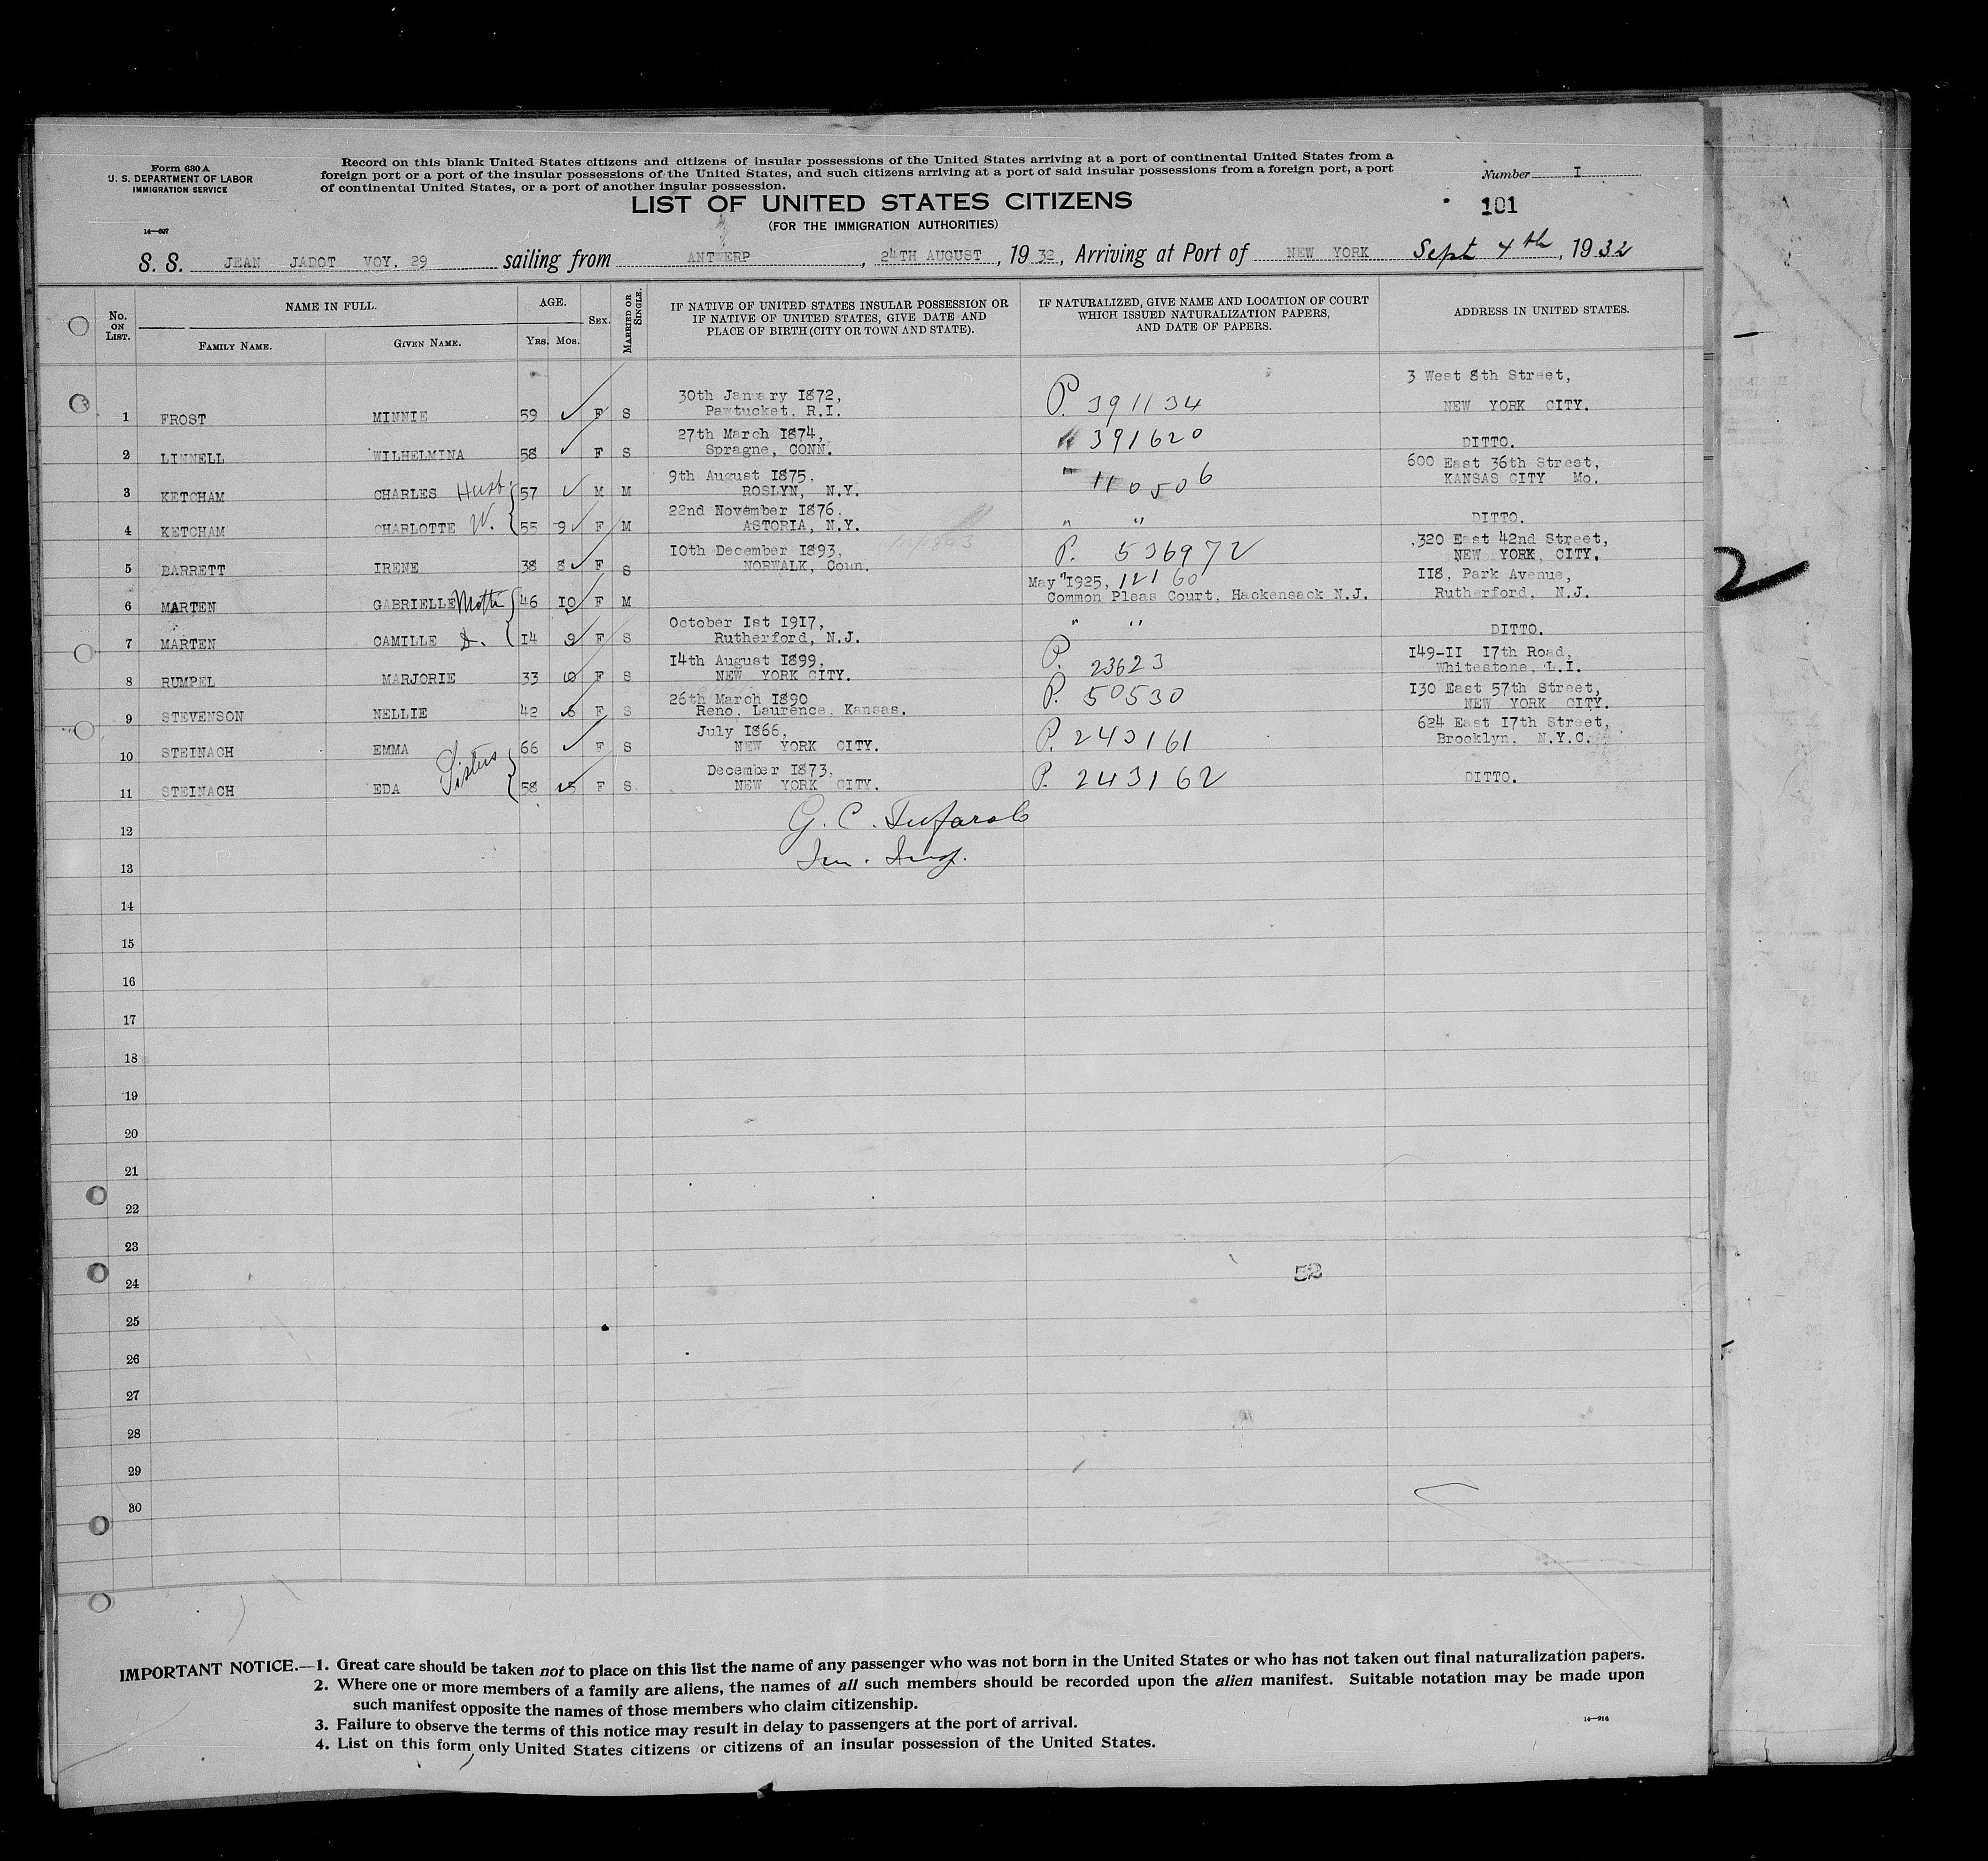 Form 630 A
U. S. DEPARTMENT OF LABOR
IMMIGRATION SERVICE
14—807
Record on this blank United States citizens and citizens of insular possessions of the United States arriving at a port of continental United States from a
foreign port or a port of the insular possessions of the United States, and such citizens arriving at a port of said insular possessions from a foreign port, a port
of continental United States, or a port of another insular possession.
Number I
LIST OF UNITED STATES CITIZENS
101
(FOR THE IMMIGRATION AUTHORITIES)
S. S. JEAN JADOT VOY. 29 sailing from ANTWERP, 24TH AUGUST, 1932, Arriving at Port of NEW YORK Sept 4th, 1932
No. ON LIST.
NAME IN FULL.
FAMILY NAME.
GIVEN NAME.
AGE.
YRS. MOS.
SEX.
MARRIED OR SINGLE.
IF NATIVE OF UNITED STATES INSULAR POSSESSION OR
IF NATIVE OF UNITED STATES, GIVE DATE AND
PLACE OF BIRTH (CITY OR TOWN AND STATE).
IF NATURALIZED, GIVE NAME AND LOCATION OF COURT
WHICH ISSUED NATURALIZATION PAPERS,
AND DATE OF PAPERS.
ADDRESS IN UNITED STATES.
3 West 8th Street,
30th January 1872,
1 FROST MINNIE 59 F S Pawtucket, R.I. P. 391134 NEW YORK CITY.
27th March 1874,
2 LINNELL WILHELMINA 58 F S Spragne, CONN. 391620 DITTO.
9th August 1875, 600 East 36th Street,
3 KETCHAM CHARLES Husb. 57 M M ROSLYN, N.Y. " 110506 KANSAS CITY Mo.
22nd November 1876,
4 KETCHAM CHARLOTTE W. 55 9 F M ASTORIA, N.Y. " " DITTO.
10th December 1893, 320 East 42nd Street,
5 BARRETT IRENE 38 8 F S NORWALK, Conn. P. 536972 NEW YORK CITY.
May 1925, 12160 118, Park Avenue,
6 MARTEN GABRIELLE Moth 46 10 F M Common Pleas Court, Hackensack N.J. Rutherford, N.J.
October 1st 1917,
7 MARTEN CAMILLE D. 14 9 F S Rutherford, N.J. " " DITTO.
14th August 1899, 149-11 17th Road,
8 RUMPEL MARJORIE 33 F S NEW YORK CITY. P. 23623 Whitestone, L.I.
26th March 1890 130 East 57th Street,
9 STEVENSON NELLIE 42 5 F S Reno, Laurence, Kansas. P. 50530 NEW YORK CITY.
July 1866, 624 East 17th Street,
10 STEINACH EMMA Sisters 66 F S NEW YORK CITY. P. 243161 Brooklyn, N.Y.C.
December 1873,
11 STEINACH EDA 58 F S NEW YORK CITY. P. 243162 DITTO.
12 G. C.
13
14
15
16
17
18
19
20
21
22
23
24 52
25
26
27
28
29
30
2
IMPORTANT NOTICE.—1. Great care should be taken not to place on this list the name of any passenger who was not born in the United States or who has not taken out final naturalization papers.
2. Where one or more members of a family are aliens, the names of all such members should be recorded upon the alien manifest. Suitable notation may be made upon
such manifest opposite the names of those members who claim citizenship.
3. Failure to observe the terms of this notice may result in delay to passengers at the port of arrival.
4. List on this form only United States citizens or citizens of an insular possession of the United States.
14—914